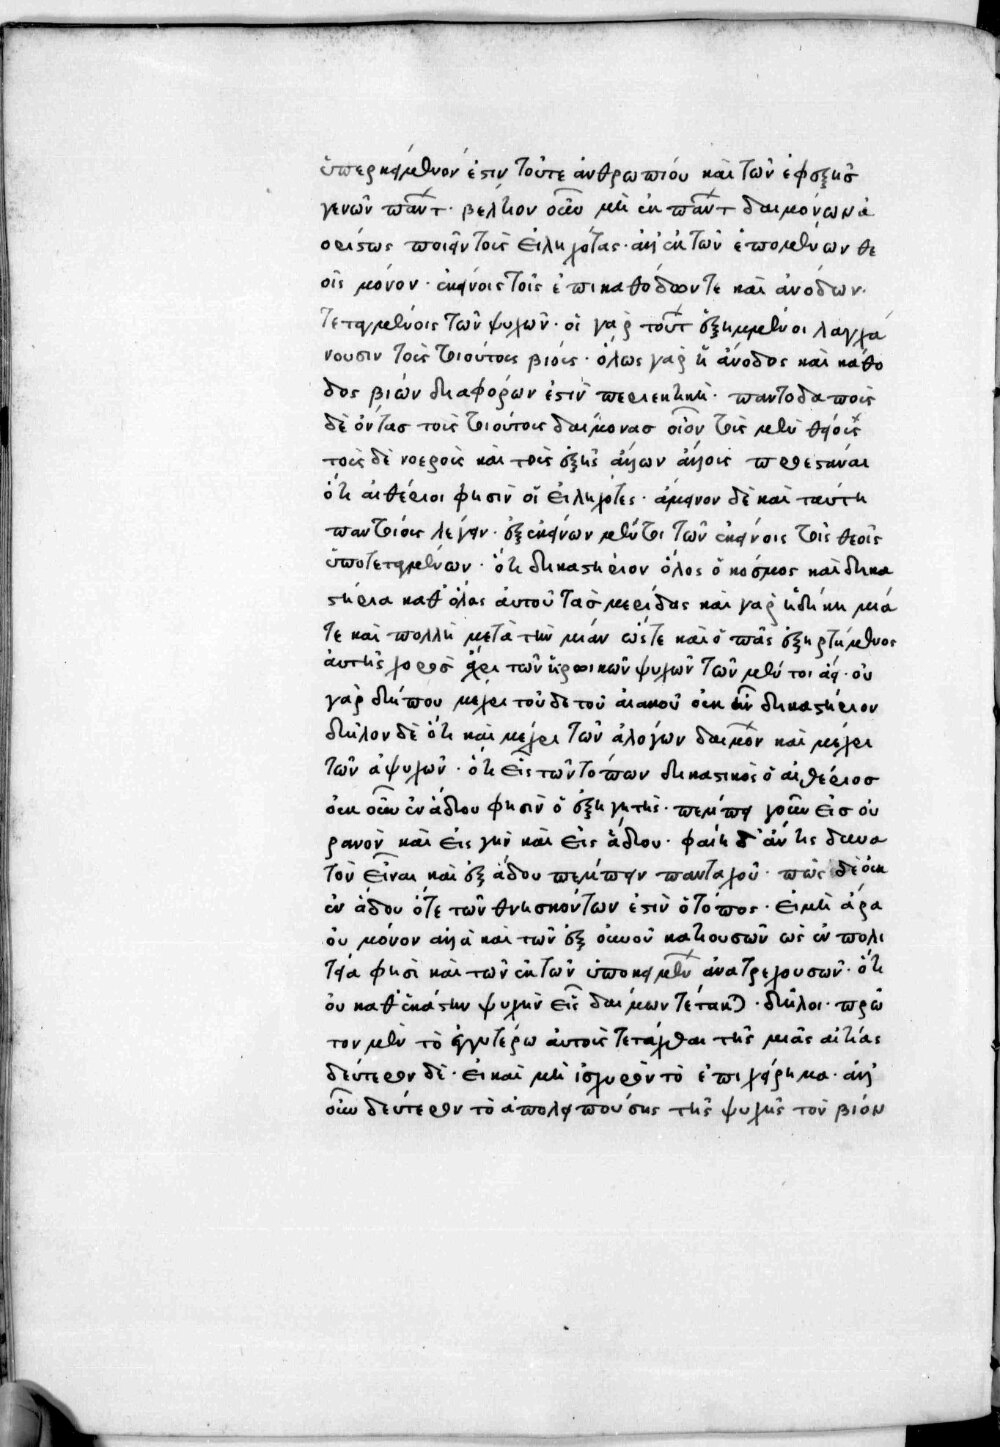 ὑπερκείμενόν ἐστιν τοῦ τε ἀνθρωπίου καὶ τῶν ἐφεξῆς
γενῶν πάντ· βέλτιον οὖν μὴ ἐκ πάντ δαιμόνων ἀ
ορίστως ποιεῖν τοὺς εἰληχότας· ἀλλ' ἐκ τῶν ἑπομένων θε
οῖς μόνον· ἐκείνοις τοῖς ἐπι καθόδων τε καὶ ἀνόδων·
τεταγμένοις τῶν ψυχῶν· οἱ γὰρ τούτ ἐξημμένοι λαγχά
νουσιν τοῖς τοιούτοις βίοις· ὅλως γὰρ ἡ ἄνοδος καὶ κάθο
δος βιῶν διαφόρων ἐστὶν περιεκτική· παντοδαποὺς
δὲ ὄντας τοὺς τοιούτους δαίμονας οἷον τοὺς μὲν θείους
τοὺς δὲ νοεροὺς καὶ τοὺς ἑξῆς ἄλλων ἄλλοις προεστάναι
ὅτι αἰθέριοι φησὶν οἱ εἰληχότες· ἄμεινον δὲ καὶ ταύτη
παντοίους λέγειν· ἐξ ἐκείνων μέντοι τῶν ἐκείνοις τοῖς θεοῖς
ὑποτεταγμένων· ὅτι δικαστήριον ὅλος ὁ κόσμος καὶ δικα
στήρια καθ' ὅλας αὐτοῦ τὰς μερίδας καὶ γὰρ ἡ δίκη μία
τε καὶ πολλὴ μετὰ τὴν μίαν ὥστε καὶ ὁ πᾶς ἐξηρτημένος
αὐτῆς χορὸς ἄχρι τῶν ἡρωικῶν ψυχῶν τῶν μέν τοι ἀεί· οὐ
γὰρ δήπου μέχρι τοῦδε τοῦ αἰακοῦ οὐκ ἦν δικαστήριον
δῆλον δὲ ὅτι καὶ μέχρι τῶν ἀλόγων δαιμόν καὶ μέχρι
τῶν ἀψύχων· ὅτι εἷς τῶν τόπων δικαστικὸς ὁ αἰθέριος
οὐκ οὖν ἐν ἅδου φησὶν ὁ ἐξηγητὴς· πέμπει γοῦν εἰς οὐ
ρανὸν καὶ εἰς γῆν καὶ εἰς ἅδου· φαίη δ' ἄν τις δυνα
τὸν εἶναι καὶ ἐξ ἅδου πέμπειν πανταχοῦ· πῶς δὲ οὐκ
ἐν ἅδου ὅτε τῶν θνησκόντων ἐστὶν ὁ τόπος· εἰ μὴ ἄρα
οὐ μόνον ἀλλὰ καὶ τῶν ἐξ οὐνοῦ κατιουσῶν ὡς ἐν πολι
τεία φησὶ καὶ τῶν ἐκ τῶν ὑποκειμέν ἀνατρεχουσῶν· ὅτι
οὐ καθ' ἑκάστην ψυχὴν εἷς δαίμων τέτακται· δηλοῖ· πρῶ
τον μὲν τὸ ἐγγυτέρω αὐτοὺς τετάχθαι τῆς μιᾶς αἰτίας
δεύτερον δὲ· εἰ καὶ μὴ ἰσχυρὸν τὸ ἐπιχείρημα· ἀλλ'
οὖν δεύτερον τὸ ἀπολειπούσης τῆς ψυχῆς τὸν βίον